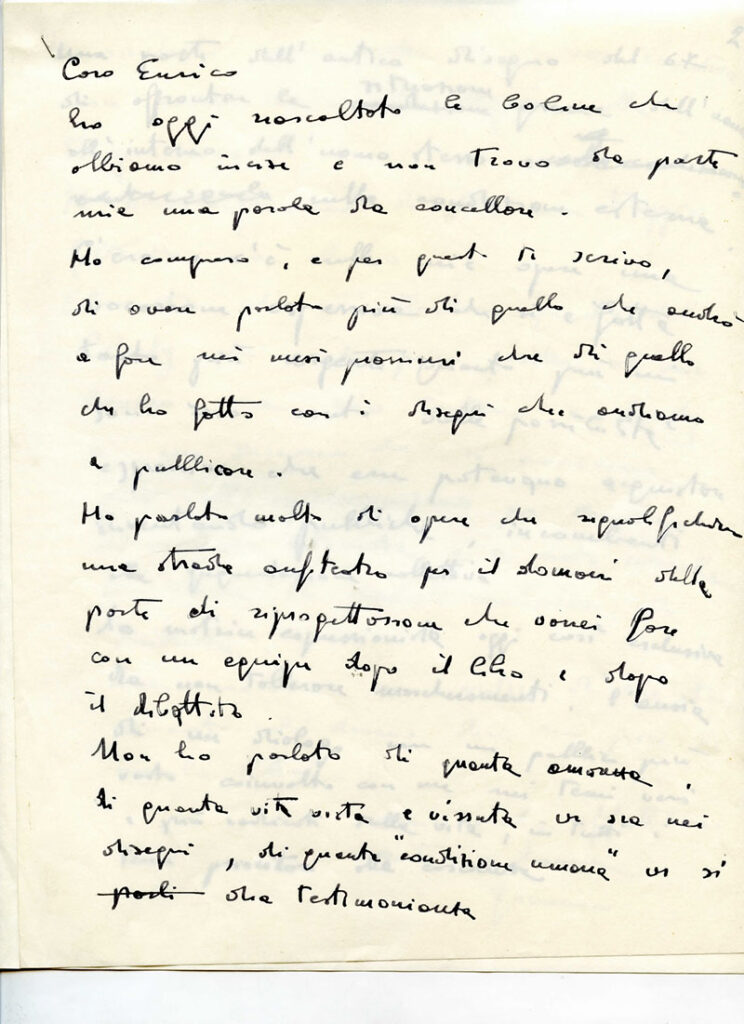 Caro Enrico
ho oggi riascoltato le bobine che
abbiamo incise e non trovo da parte
mia una parola da cancellare.
Mo compreso, e per questo ti scrivo,
di avere parlato più di quello che andrò
a fare nei mesi prossimi che di quello
che ho fatto con i disegni che andiamo
a pubblicare.
Ho parlato molto di opere che
una strada per il domani della
parte di riprogettazione che vorrei fare
con un equipe dopo il libro e dopo
il dibattito.
Non ho parlato di quanta amarezza,
di quanta vita vista e vissuta vi sia nei
disegni, di quanta "condizione umana" vi si
parli dia testimonianza